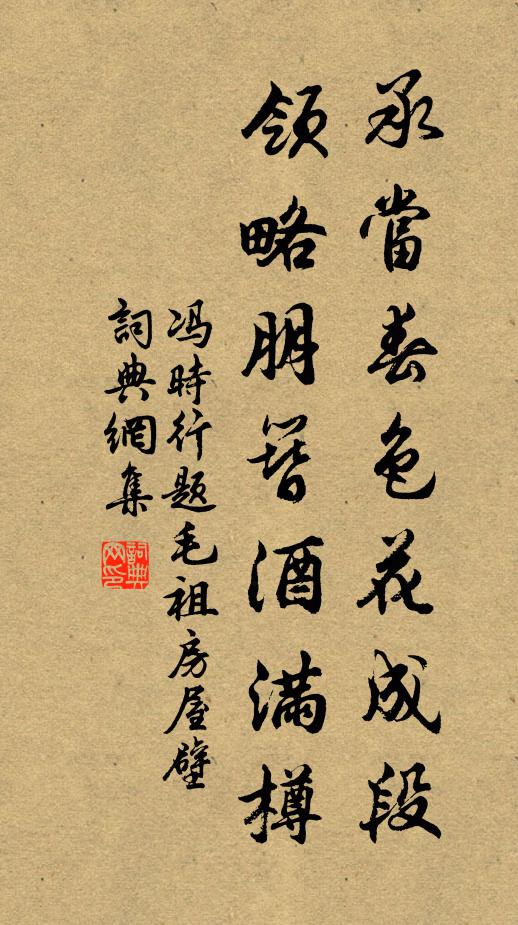 承當春色花成段
領略朋簪酒滿樽
馮時行題毛祖房屋壁
詞典網集
詞典網印